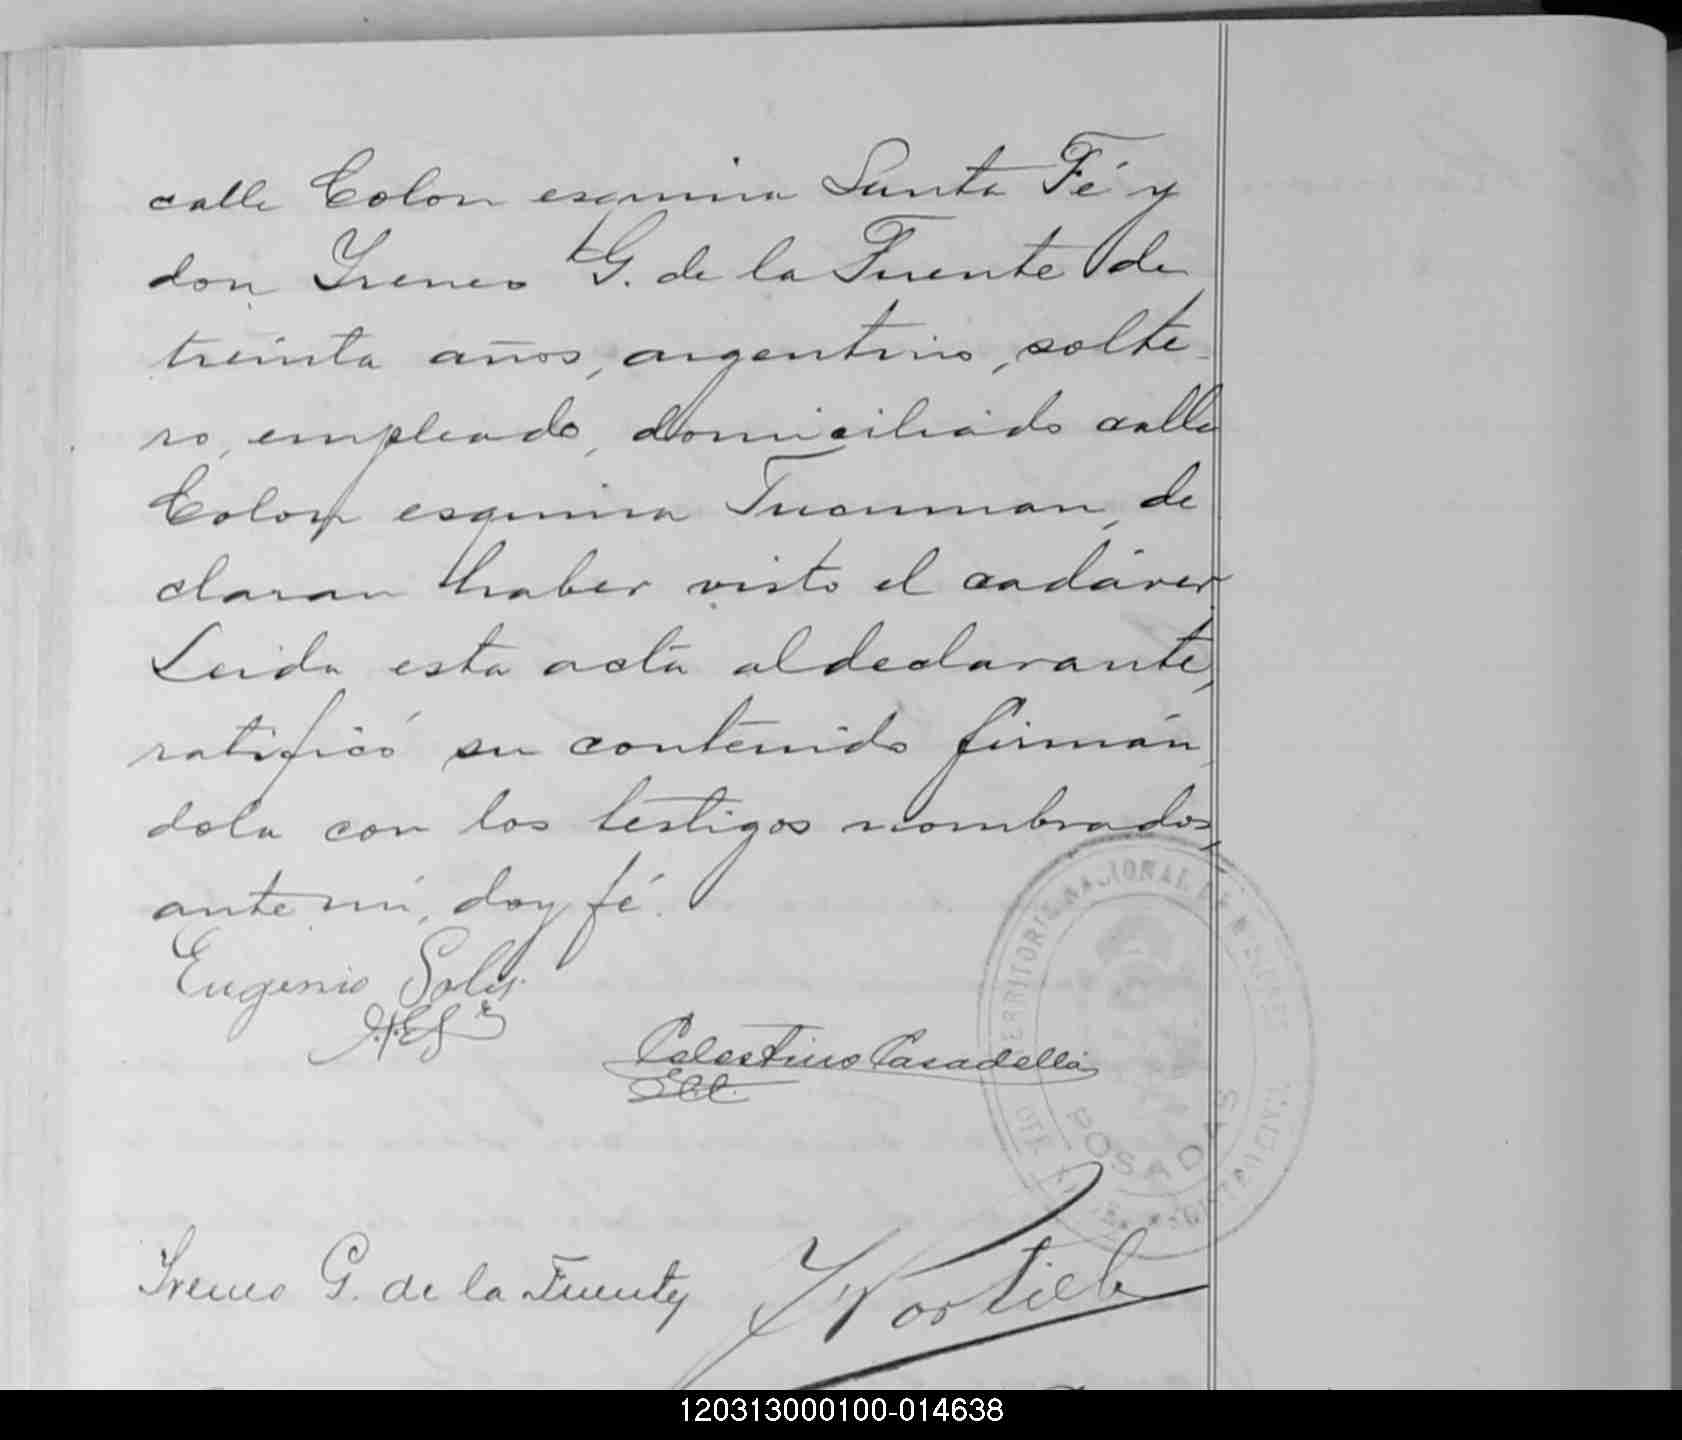 calle Colon esquina Santa Fé y
don Ireneo G. de la Fuente de
treinta años, argentino, solte-
ro, empleado, domiciliado calle
Colon esquina Tucuman, de
claran haber visto el cadáver.
Leida esta acta al declarante,
ratificó su contenido firmán
dola con los testigos nombrados,
ante mí, doy fé.
Eugenio Solis
Celestino Casadella
TERRITORIO NACIONAL DE MISIONES
POSADAS
Ireneo G. de la Fuente
120313000100-014638